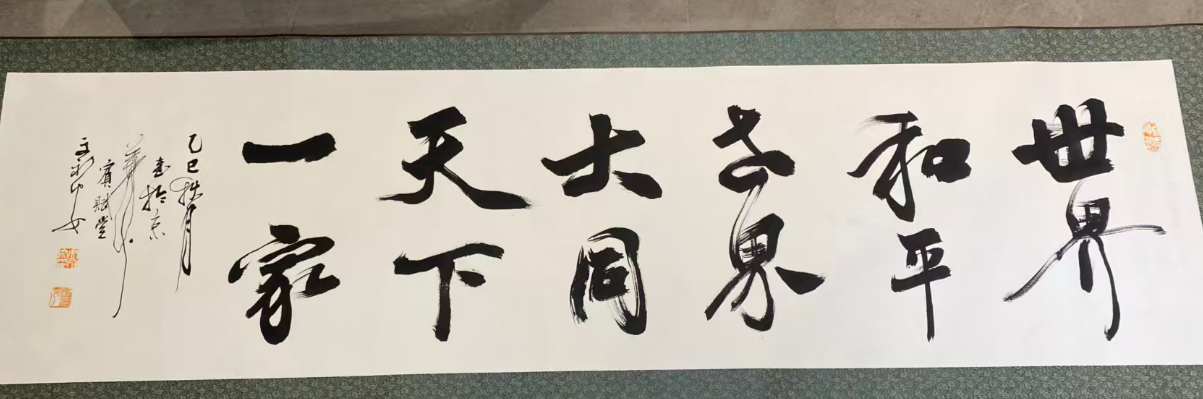 世界
和平
世界
大同
天下
一家
乙巳 月
書於京
華
賓 堂